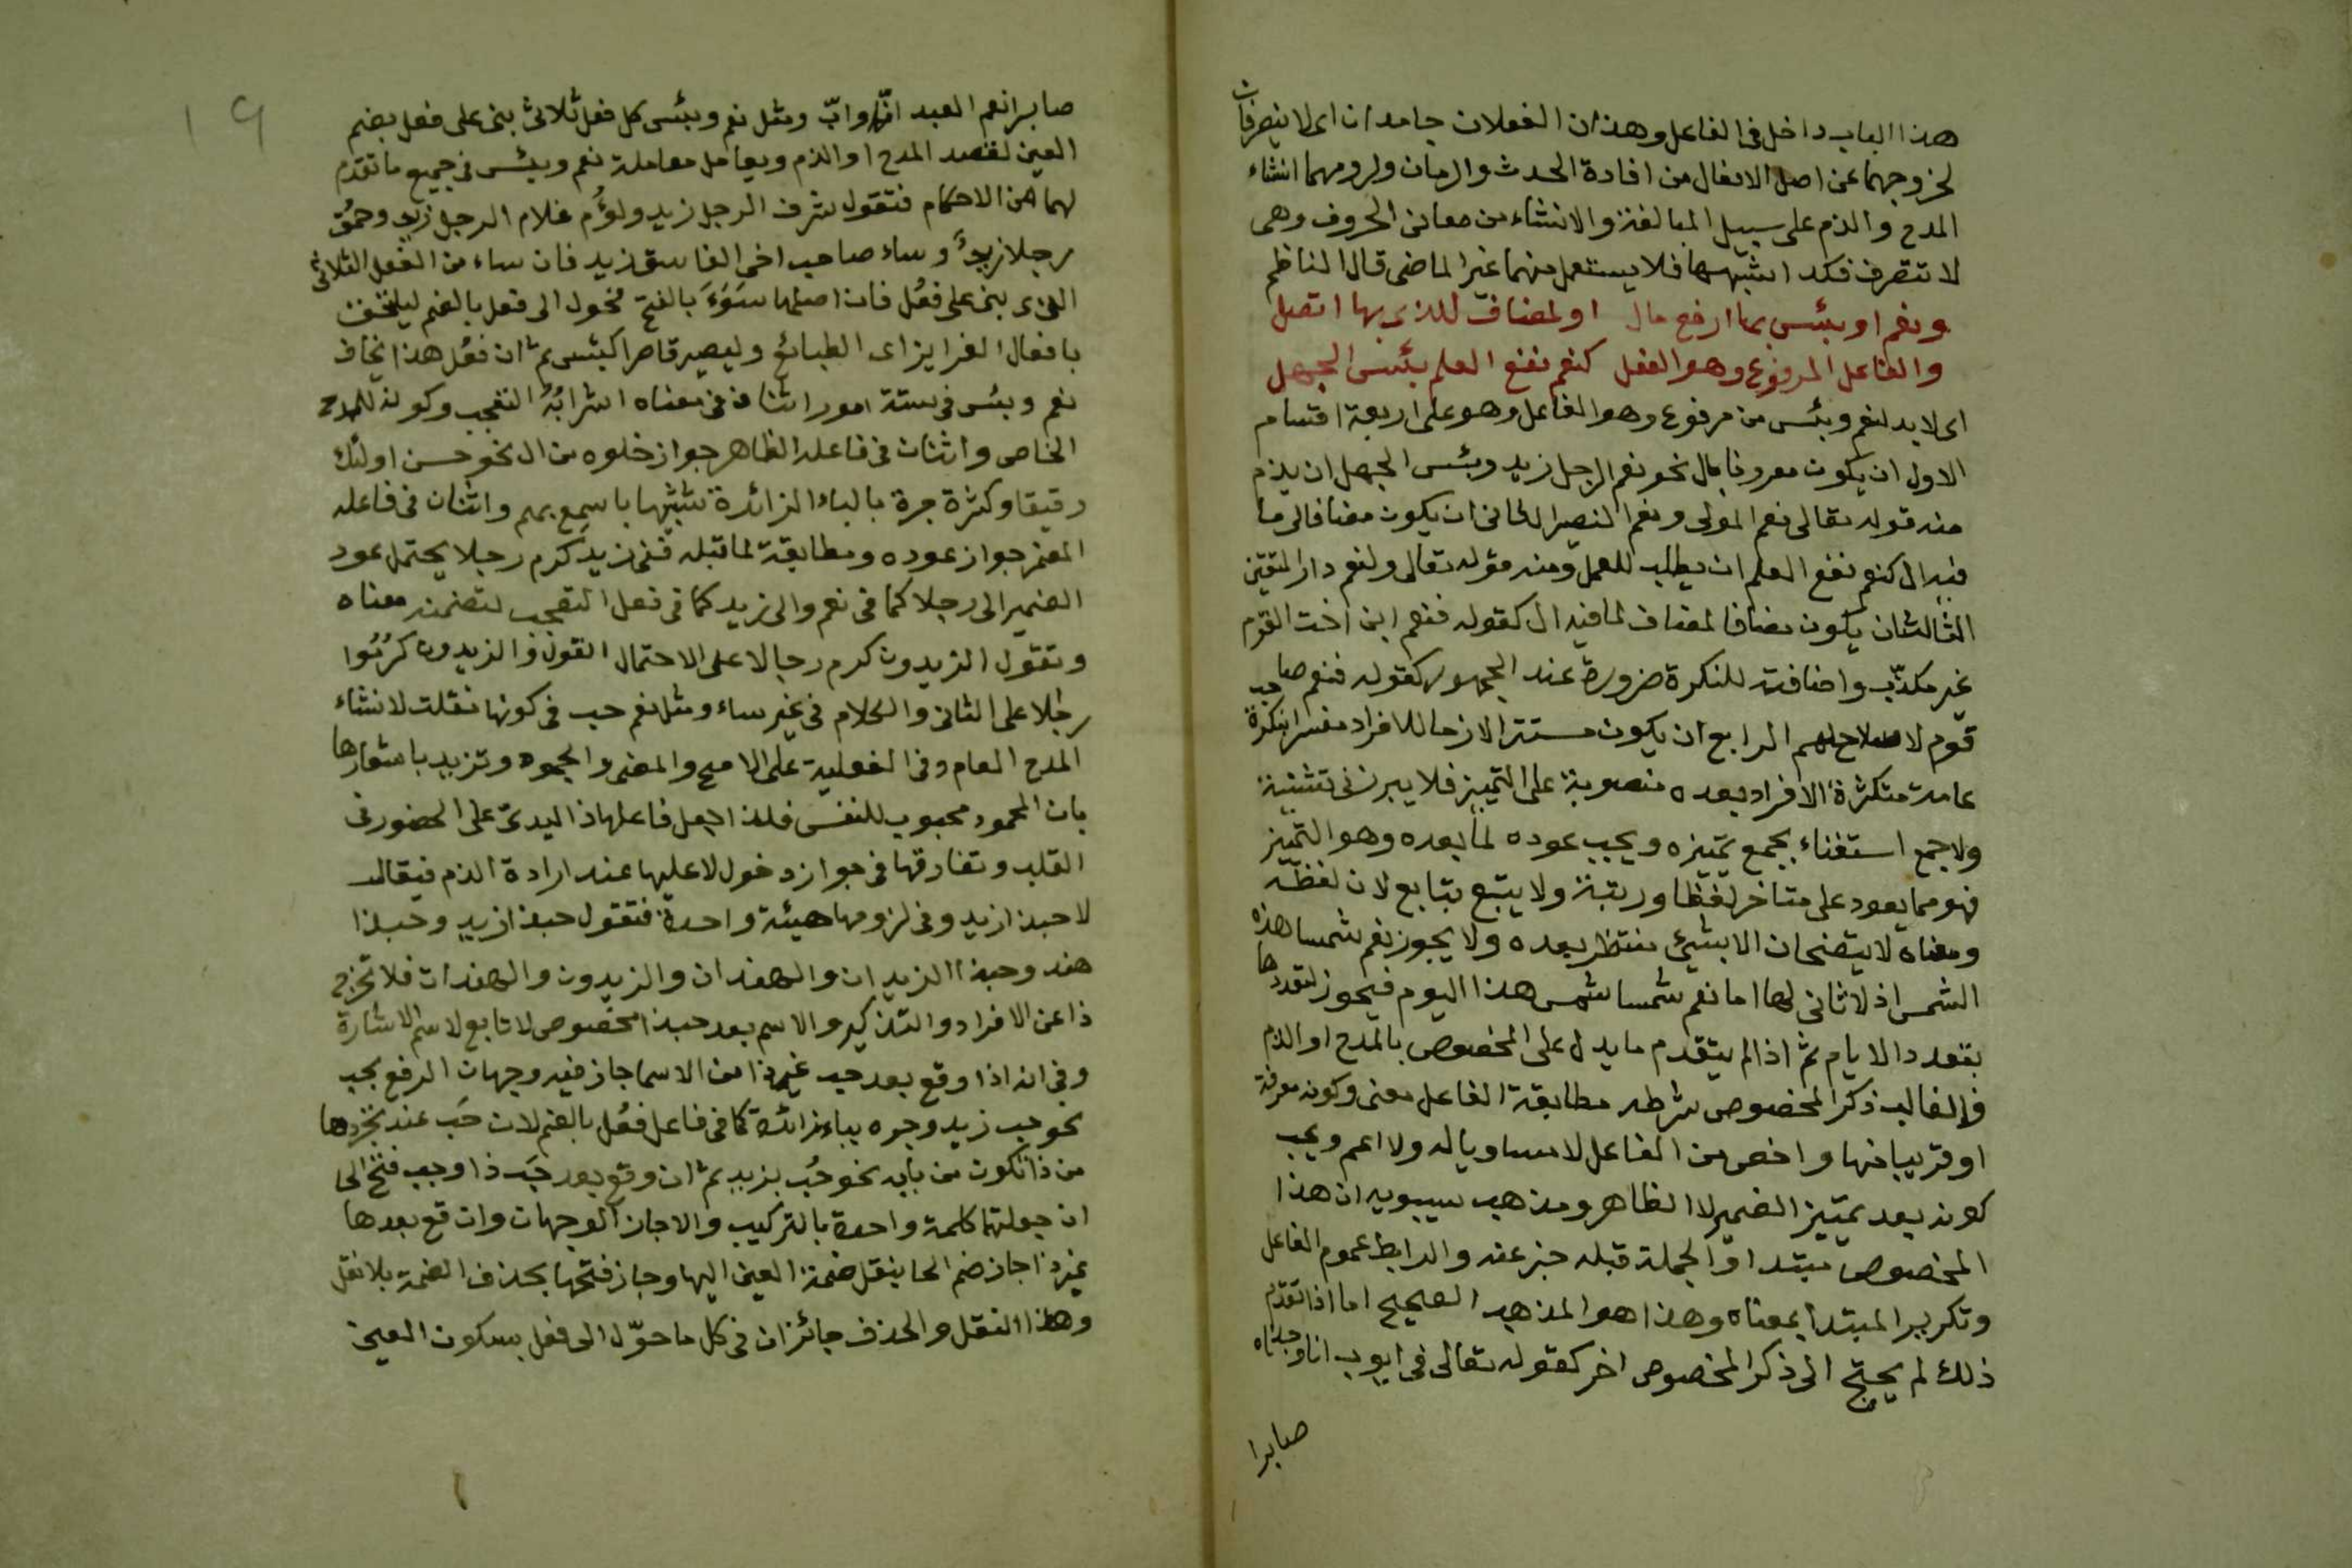 هذا الباب داخل فى الفاعل وهذان الفعلان جامدان اى لا ينصرفان
لخروجهما عن اصل الافعال من افادة الحدث والزمان ولزومهما انشاء
المدح والذم على سبيل المبالغة والانشاء من معانى الحروف وهى
لا تتصرف فكذا اشبهها فلا يستعمل منهما غير الماضى قال الناظم
ونعم او بئس بما ارفع حال اولمضاف للذى بها اتصل
والفاعل المرفوع وهو الفعل كنعم نفع العلم بئس الجهل
اى لابد لنعم وبئس من مرفوع وهو الفاعل وهو على اربعة اقسام
الاول ان يكون معروفا بال نحو نعم الرجل زيد وبئس الجهل ان يذم
منه قوله تعالى نعم المولى ونعم النصير الثانى ان يكون مضافا الى ما
فيه ال كنعم نفع العلم ان يطلب للعمل ومنه قوله تعالى ولنعم دار المتقين
الثالث ان يكون مضافا لمضاف لما فيه ال كقوله فنعم ابن اخت القوم
غير مكذّب واضافته للنكرة ضرورة عند الجمهور كقوله فنعم صاحب
قوم لا سلاح لهم الرابع ان يكون مستترا لازما للافراد مفسرا بنكرة
عامة متكثرة الافراد بعده منصوبة على التمييز فلا يبرز فى تثنية
ولا جمع استغناء بجمع تمييزه ويجب عوده لما بعده وهو التمييز
فهو مما يعود على متاخر لفظا ورتبة ولا يتبع بتابع لان لفظه
ومعناه لا يتضحان الا بشئ منتظر بعده ولا يجوز نعم شمسا هذه
الشمس اذ لا ثانى لها اما نعم شمسا شمس هذا اليوم فيجوز لتعددها
بتعدد الايام ثم اذا لم يتقدم ما يدل على المخصوص بالمدح او الذم
فالغالب ذكر المخصوص شرطه مطابقة الفاعل معنى وكونه معرفة
او قريبا منها واخص من الفاعل لا مساويا له ولا اعم ويجب
كونه بعد تمييز الضمير لا الظاهر ومذهب سيبويه ان هذا
المخصوص مبتدا والجملة قبله خبر عنه والرابط عموم الفاعل
وتكرير المبتدا بمعناه وهذا هو المذهب الصحيح اما اذا تقدم
ذلك لم يحتج الى ذكر المخصوص اخر كقوله تعالى فى ايوب انا وجدناه
صابرا
19
صابرا نعم العبد انه اواب ومثل نعم وبئس كل فعل ثلاثى بنى على فعل بضم
العين لقصد المدح او الذم ويعامل معاملة نعم وبئس فى جميع ما تقدم
لهما من الاحكام فتقول شرف الرجل زيد ولؤم غلام الرجل زيد وحمُق
رجلا زيدٌ وساء صاحب اخى الفاسق زيد فان ساء من الفعل الثلاثى
الذى بنى على فعُل فان اصلها سَوَءَ بالفتح فحول الى فعل بالضم ليلتحق
بافعال الغرايز اى الطبائع وليصير قاصرا كبئس ثم ان فعُل هذا يخالف
نعم وبئس فى ستة امور اثنان فى معناه اشرابُه التعجب وكونه للمدح
الخاص واثنان فى فاعله الظاهر جواز خلوه من ال نحو حسن اولئك
رفيقا وكثرة جره بالباء الزائدة تشبيها باسمِع بهم واثنان فى فاعله
المضمر جواز عوده ومطابقة لما قبله ففى زيد كرم رجلا يحتمل عود
الضمير الى رجلا كما فى نعم والى زيد كما فى فعل التعجب لتضمنه معناه
وتقول الزيدون كرم رجالا على الاحتمال الاول والزيدون كرمُوا
رجالا على الثانى والكلام فى غير ساء ومثل نعم حب فى كونها نقلت لانشاء
المدح العام وفى الفعلية على الاصح والمضى والجمود وتزيد باشعارها
بان المحمود محبوب للنفس فلذا اجعل فاعلها ذا ليدل على الحضور فى
القلب وتفارقها فى جواز دخول لا عليها عند ارادة الذم فيقال
لا حبذا زيد وفى لزومها هيئة واحدة فتقول حبذا زيد وحبذا
هند وحبذا الزيدان والهندان والزيدون والهندات فلا تخرج
ذا عن الافراد والتذكير والاسم بعد حبذا مخصوص لا تابع لاسم الاشارة
وفى انه اذا وقع بعد حب غير ذا من الاسما جاز فيه وجهان الرفع بحب
نحو حب زيد وجره بباء زائدة كما فى فاعل فعُل بالضم لان حَب عند تجردها
من ذا تكون من بابه نحو حُب بزيد ثم ان وقع بعد حَب ذا وجب فتح الحا
ان جعلتهما كلمة واحدة بالتركيب والا جاز الوجهان وان وقع بعدها
غير ذا جاز ضم الحا بنقل ضمة العين اليها وجاز فتحها بحذف الضمة بلا نقل
وهذا النقل والحذف جائزان فى كل ما حوّل الى فعل بسكون العين